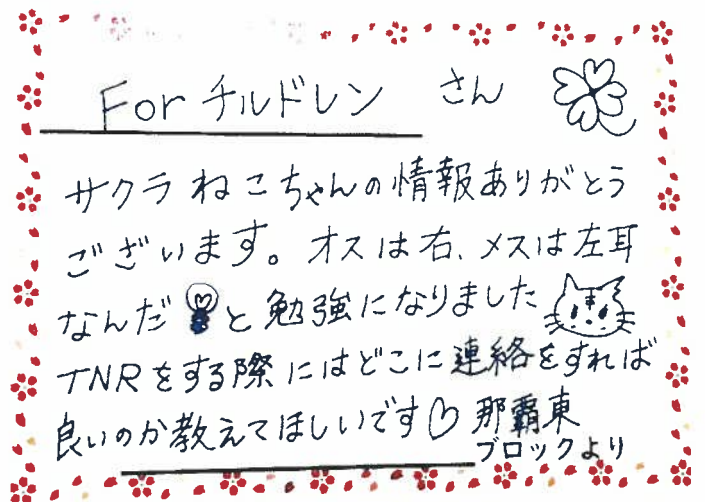 For チルドレン さん
サクラねこちゃんの情報ありがとう
ございます。オスは右、メスは左耳
なんだと勉強になりました
TNRをする際にはどこに連絡をすれば
良いのか教えてほしいです♡ 那覇東
ブロックより